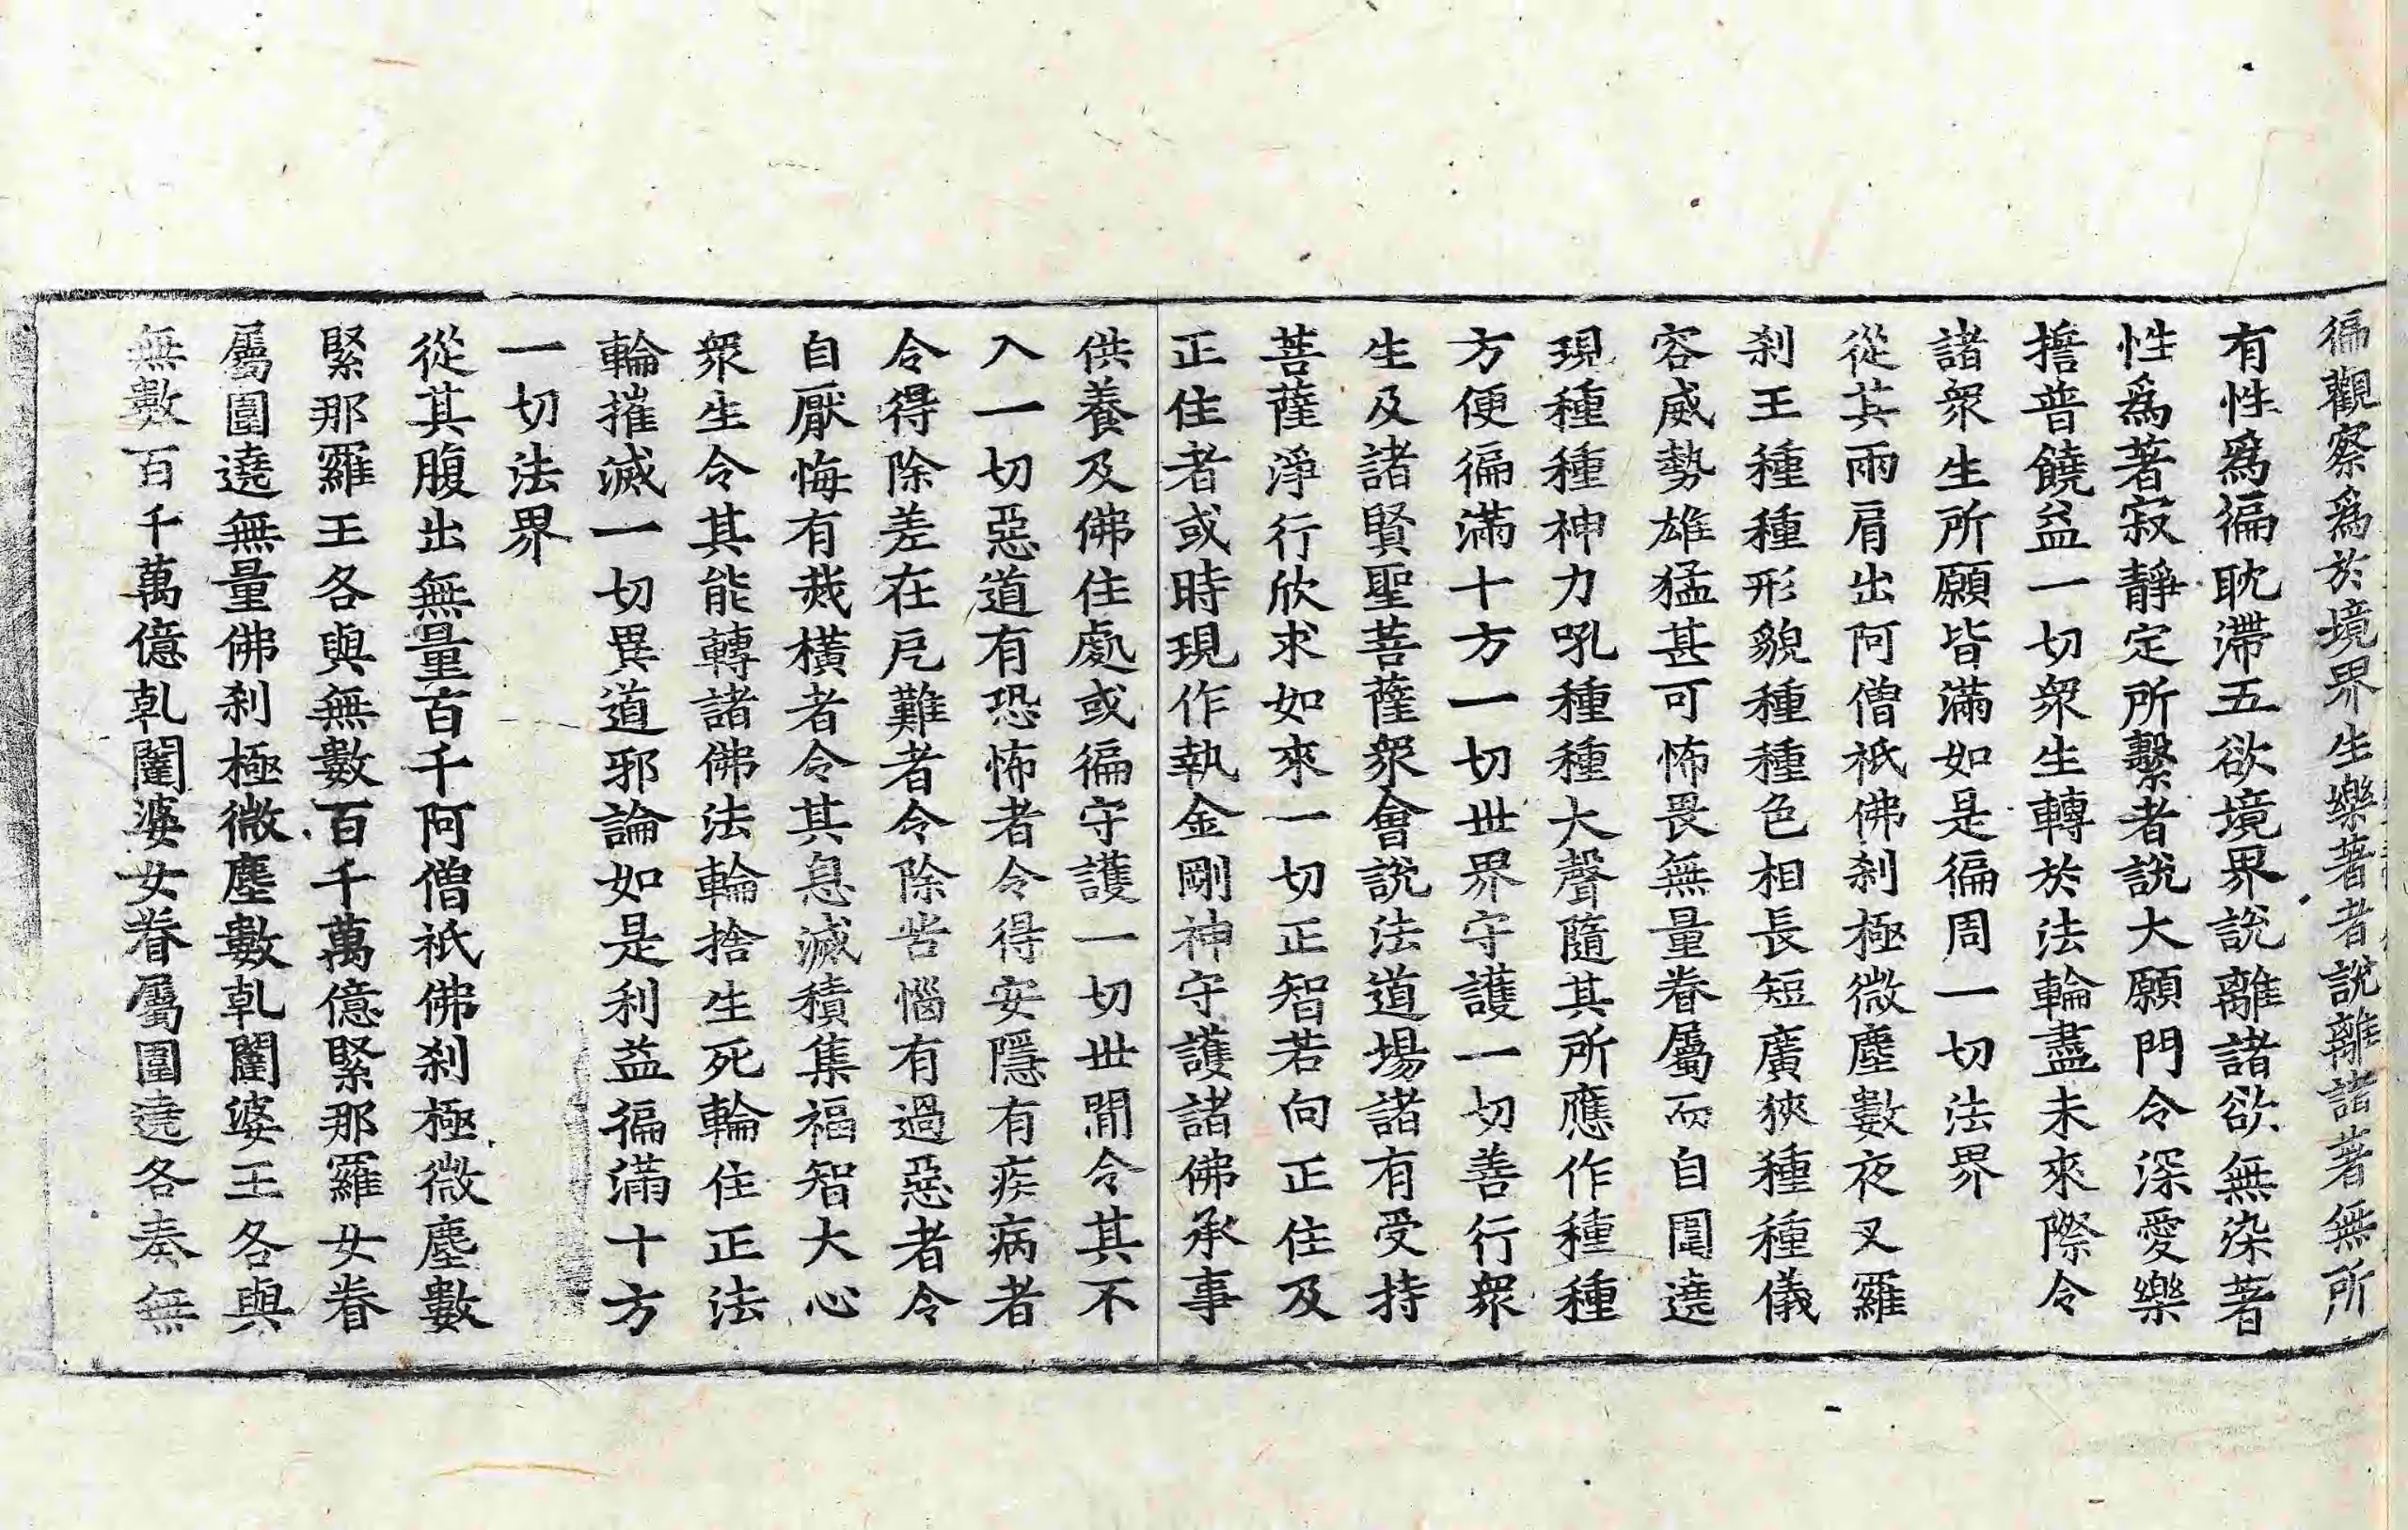 徧觀察爲於境界生樂著者說離諸著無所
有性爲徧耽滯五欲境界說離諸欲無染著
性爲著寂靜定所繫者說大願門令深愛樂
擔普饒益一切衆生轉於法輪盡未來際令
諸衆生所願皆滿如是徧周一切法界
從其兩肩出阿僧祇佛刹極微塵數夜叉羅
刹王種種形貌種種色相長短廣狹種種儀
容威勢雄猛甚可怖畏無量眷屬而自圍遶
現種種神力吼種種大聲隨其所應作種種
方便徧滿十方一切世界守護一切善行衆
生及諸賢聖菩薩衆會說法道場諸有受持
菩薩淨行欣求如來一切正智若向正住及
正住者或時現作執金剛神守護諸佛承事
供養及佛住處或徧守護一切世間令其不
入一切惡道有恐怖者令得安隱有疾病者
令得除差在戹難者令除苦惱有過惡者令
自厭悔有烖橫者令其息滅積集福智大心
衆生令其能轉諸佛法輪捨生死輪住正法
輪摧滅一切異道邪論如是利益徧滿十方
一切法界
從其腹出無量百千阿僧祇佛刹極微塵數
緊那羅王各與無數百千萬億緊那羅女眷
屬圍遶無量佛刹極微塵數乹闥婆王各與
無數百千萬億乹闥婆女眷屬圍遶各奏無